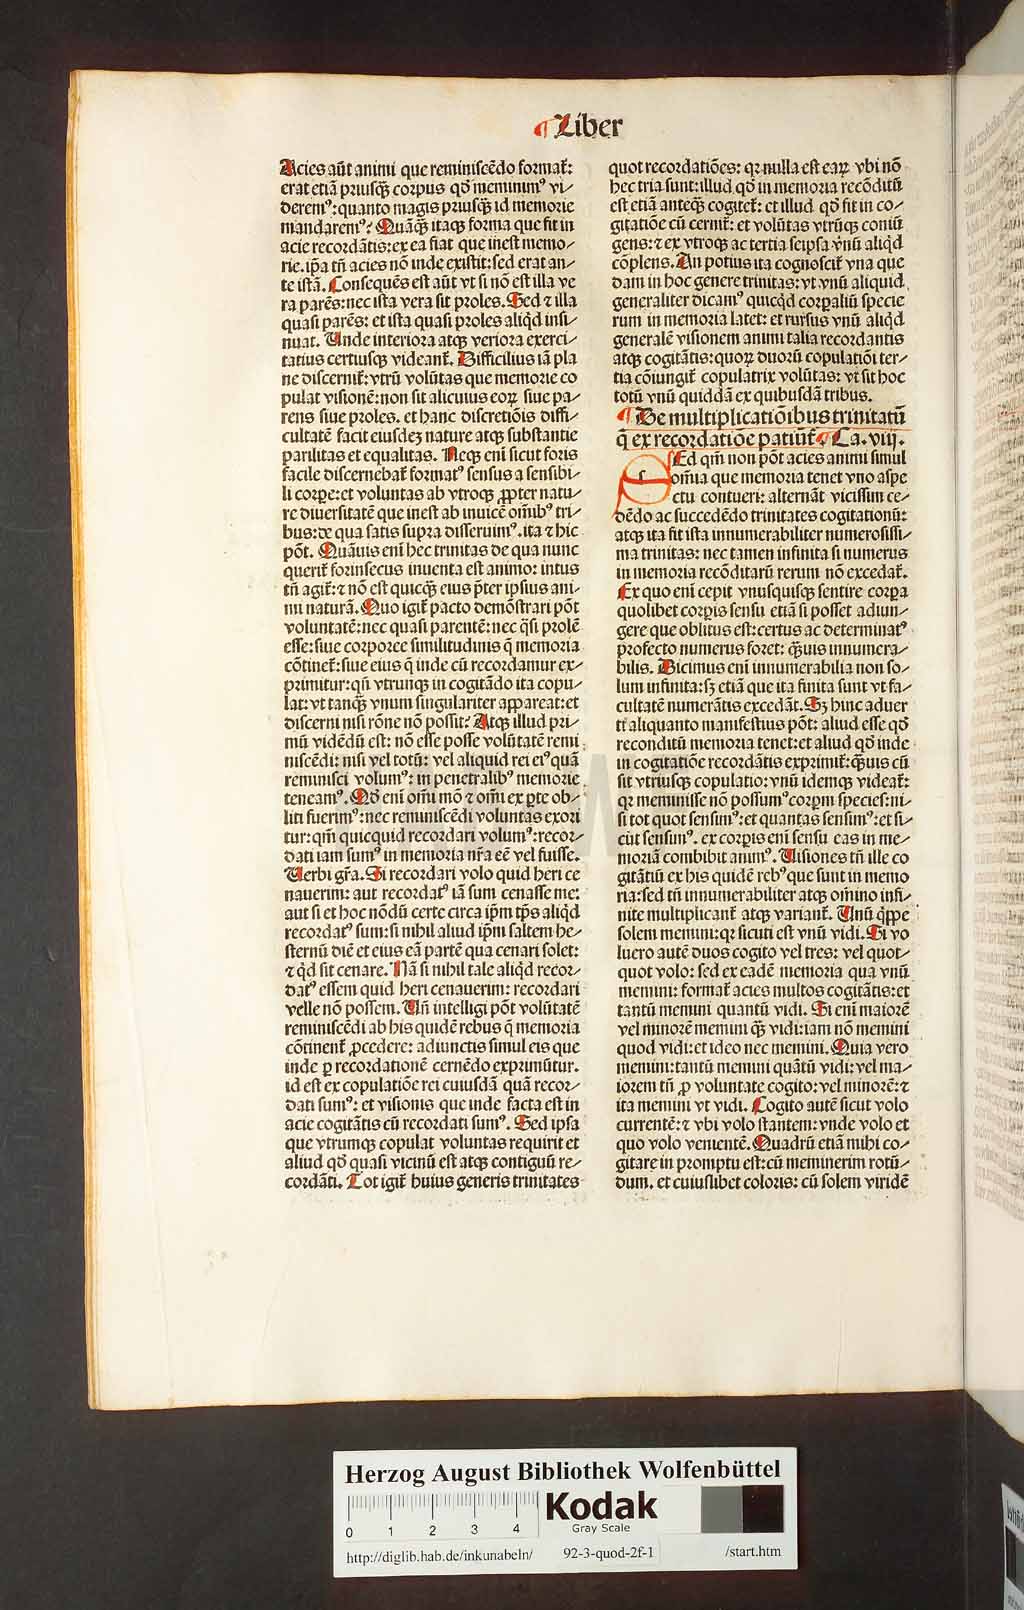 ¶ Liber
Acies aũt animi que reminiscẽdo format᷑:
erat etiã priusqꝫ corpus qḋ meminimꝰ vi⸗
deremꝰ: quanto magis priusqꝫ id memorie
mandaremꝰ? Quãqꝫ itaqꝫ forma que fit in
acie recordãtis: ex ea fiat que inest memo⸗
rie. ip̃a tñ acies nõ inde existit: sed erat an⸗
te istã. Consequẽs est aũt vt si nõ est illa ve
ra parẽs: nec ista vera sit proles. Sed ⁊ illa
quasi parẽs: et ista quasi proles aliqḋ insi⸗
nuat. Unde interiora atqꝫ veriora exerci⸗
tatius certiusqꝫ videant᷑. Difficilius iã pla
ne discernit᷑: vtrũ volũtas que memorie co
pulat visionẽ: non sit alicuius eoꝝ siue pa⸗
rens siue proles. et hanc discretiõis diffi⸗
cultatẽ facit eiusdeꝫ nature atqꝫ substantie
parilitas et equalitas. Neqꝫ eni᷑ sicut foris
facile discernebat᷑ formatꝰ sensus a sensibi⸗
li corꝑe: et voluntas ab vtroqꝫ ꝓpter natu⸗
re diuersitatẽ que inest ab inuicẽ om̃ibꝰ tri⸗
bus: de qua satis supra disseruimꝰ. ita ⁊ hic
põt. Quãuis eni᷑ hec trinitas de qua nunc
querit᷑ forinsecus inuenta est animo: intus
tñ agit᷑: ⁊ nõ est quicqꝫ eius p̃ter ipsius ani⸗
mi naturã. Quo igit᷑ pacto demõstrari põt
voluntatẽ: nec quasi parentẽ: nec q̃si prolẽ
esse: siue corporee similitudinis q̃ memoria
cõtinet᷑: siue eius q̃ inde cũ recordamur ex⸗
primitur: qñ vtrunqꝫ in cogitãdo ita copu⸗
lat: vt tanqꝫ vnum singulariter appareat: et
discerni nisi rõne nõ possit? Atqꝫ illud pri⸗
mũ vidẽdũ est: nõ esse posse volũtatẽ remi
niscẽdi: nisi vel totũ: vel aliquid rei eiꝰ quã
reminisci volumꝰ: in penetralibꝰ memorie
teneamꝰ. Qḋ eni᷑ om̃i mõ ⁊ om̃i ex ꝑte ob⸗
liti fuerimꝰ: nec reminiscẽdi voluntas exori
tur: qm̃ quicquid recordari volumꝰ: recor⸗
dati iam sumꝰ in memoria nr̃a eẽ vel fuisse.
Verbi gr̃a. Si recordari volo quid heri ce
nauerim: aut recordatꝰ iã sum cenasse me:
aut si et hoc nõdũ certe circa ip̃m tp̃s aliqḋ
recordatꝰ sum: si nihil aliud ip̃m saltem he⸗
sternũ diẽ et eius eã partẽ qua cenari solet:
⁊ qḋ sit cenare. Nã si nihil tale aliqḋ recor⸗
datꝰ essem quid heri cenauerim: recordari
velle nõ possem. Uñ intelligi põt volũtatẽ
reminiscẽdi ab his quidẽ rebus q̃ memoria
cõtinent᷑ ꝓcedere: adiunctis simul eis que
inde ꝑ recordationẽ cernẽdo exprimũtur.
id est ex copulatiõe rei cuiusdã quã recor⸗
dati sumꝰ: et visionis que inde facta est in
acie cogitãtis cũ recordati sumꝰ. Sed ipsa
que vtrumqꝫ copulat voluntas requirit et
aliud qḋ quasi vicinũ est atqꝫ contiguũ re⸗
cordãti. Tot igit᷑ huius generis trinitates
quot recordatiões: qꝛ nulla est eaꝝ vbi nõ
hec tria sunt: illud qḋ in memoria recõditũ
est etiã anteqꝫ cogitet᷑: et illud qḋ fit in co⸗
gitatiõe cũ cernit᷑: et volũtas vtrũqꝫ coniũ
gens: ⁊ ex vtroqꝫ ac tertia seipsa vnũ aliqḋ
cõplens. An potius ita cognoscit᷑ vna que
dam in hoc genere trinitas: vt vnũ aliquid
generaliter dicamꝰ quicqḋ corꝑaliũ specie
rum in memoria latet: et rursus vnũ aliqḋ
generalẽ visionem animi talia recordantis
atqꝫ cogitãtis: quoꝝ duorũ copulatiõi ter⸗
tia cõiungit᷑ copulatrix volũtas: vt sit hoc
totũ vnũ quiddã ex quibusdã tribus.
¶ De multiplicatiõibus trinitatũ
q̃ ex recordatiõe patiũt᷑ ¶ Ca. viij.
SEd qm̃ non põt acies animi simul
om̃ia que memoria tenet vno aspe
ctu contueri: alternãt vicissim ce⸗
dẽdo ac succedẽdo trinitates cogitationũ:
atqꝫ ita fit ista innumerabiliter numerosissi⸗
ma trinitas: nec tamen infinita si numerus
in memoria recõditarũ rerum nõ excedat᷑.
Ex quo eni᷑ cepit vnusquisqꝫ sentire corꝑa
quolibet corꝑis sensu etiã si posset adiun⸗
gere que oblitus est: certus ac determinatꝰ
profecto numerus foret: qꝫuis innumera⸗
bilis. Dicimus eni᷑ innumerabilia non so⸗
lum infinita: sꝫ etiã que ita finita sunt vt fa⸗
cultatẽ numerãtis excedãt. Sꝫ hinc aduer
ti aliquanto manifestius põt: aliud esse qḋ
reconditũ memoria tenet: et aliud qḋ inde
in cogitatiõe recordãtis exprimit᷑: qꝫuis cũ
fit vtriusqꝫ copulatio: vnũ idemqꝫ videat᷑:
qꝛ meminisse nõ possumꝰ corꝑm species: ni⸗
si tot quot sensimꝰ: et quantas sensimꝰ: et si⸗
cut sensimꝰ. ex corꝑis eni᷑ sensu eas in me⸗
moriã combibit animꝰ. Uisiones tñ ille co
gitãtiũ ex his quidẽ rebꝰ que sunt in memo
ria: sed tñ innumerabiliter atqꝫ om̃ino infi⸗
nite multiplicant᷑ atqꝫ variant᷑. Unũ q̃ppe
solem memini: qꝛ sicuti est vnũ vidi. Si vo
luero autẽ duos cogito vel tres: vel quot⸗
quot volo: sed ex eadẽ memoria qua vnũ
memini: format᷑ acies multos cogitãtis: et
tantũ memini quantũ vidi. Si eni᷑ maiorẽ
vel minorẽ memini qꝫ vidi: iam nõ memini
quod vidi: et ideo nec memini. Quia vero
memini: tantũ memini quãtũ vidi: vel ma⸗
iorem tñ ꝓ voluntate cogito: vel minorẽ: ⁊
ita memini vt vidi. Cogito autẽ sicut volo
currentẽ: ⁊ vbi volo stantem: vnde volo et
quo volo venientẽ. Quadrũ etiã mihi co⸗
gitare in promptu est: cũ meminerim rotũ⸗
dum. et cuiuslibet coloris: cũ solem viridẽ
Herzog August Bibliothek Wolfenbüttel
0 1 2 3 4
Kodak
Gray Scale
http://diglib.hab.de/inkunabeln/ 92-3-quod-2f-1 /start.htm